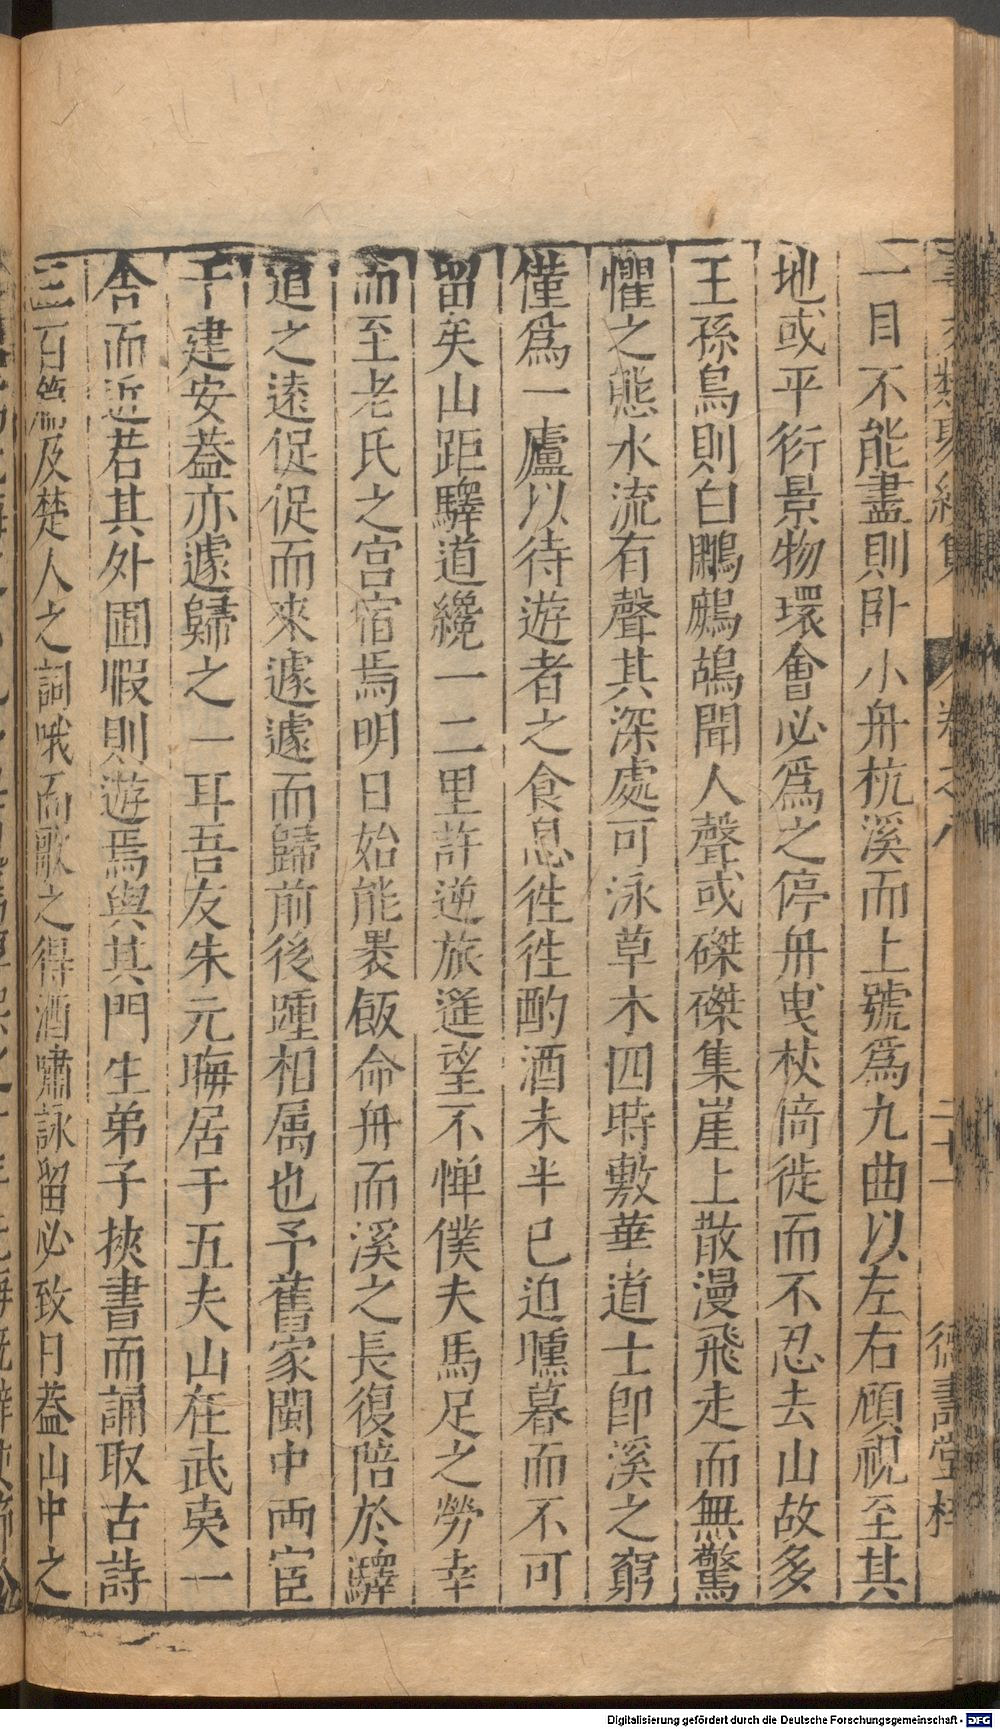 事文類聚續集 卷之八 二十一 德壽堂梓
一目不能盡則卧小舟杭溪而上號爲九曲以左右顧視至其
地或平衍景物環會必爲之停舟曵杖倚徙而不忍去山故多
王孫鳥則白鷴鷓鴣聞人聲或磔磔集崖上散漫飛走而無驚
懼之態水流有聲其深處可泳草木四時敷華道士卽溪之窮
僅爲一廬以待遊者之食息徃徃酌酒未半已迫曛暮而不可
留矣山距驛道纔一二里許逆旅遥望不憚僕夫馬足之勞幸
而至老氏之宫宿焉明日始能裹飯命舟而溪之長復陪於驛
道之逺促促而來遽遽而歸前後踵相属也予舊家閩中両宦
于建安葢亦遽歸之一耳吾友朱元晦居于五夫山在武夷一
舍而近若其外圃暇則遊焉與其門生弟子挾書而誦取古詩
三百篇及楚人之詞哦而歌之得酒嘯詠留必致日葢山中之
Digitalisierung gefördert durch die Deutsche Forschungsgemeinschaft - DFG